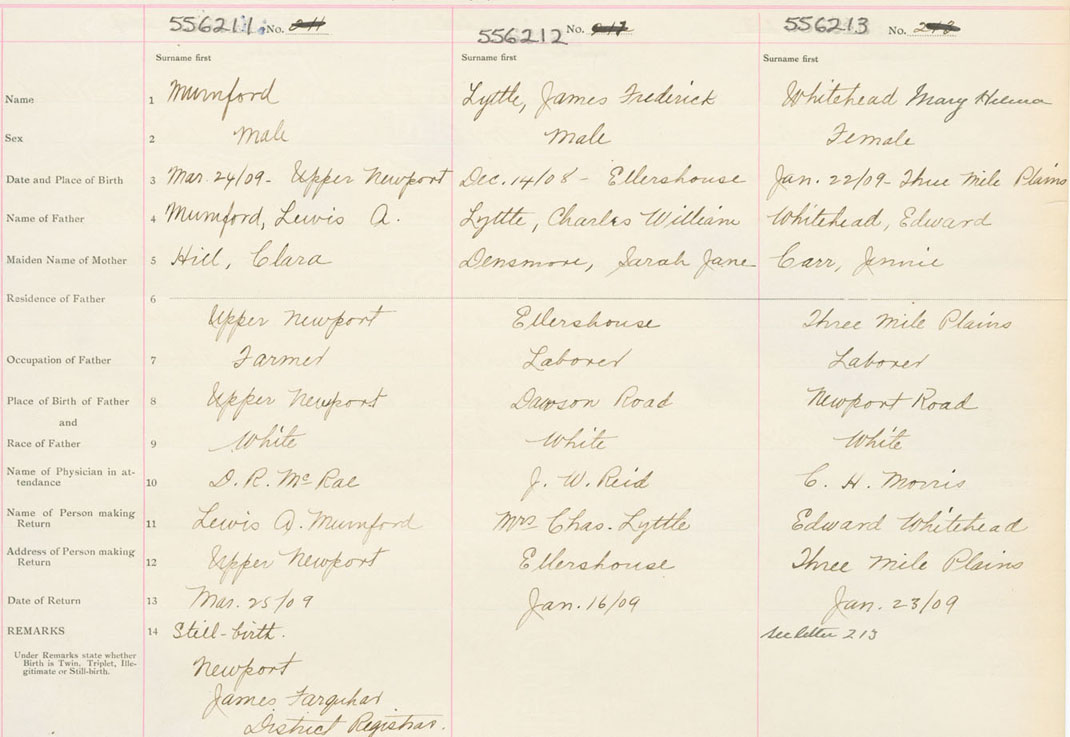 556211 No. 211 556212 No. 212 556213 No. 213
Surname first Surname first Surname first
Name 1 Mumford Lyttle, James Frederick Whitehead Mary Helena
Sex 2 Male Male Female
Date and Place of Birth 3 Mar. 24/09 - Upper Newport Dec. 14/08 - Ellershouse Jan. 22/09 - Three Mile Plains
Name of Father 4 Mumford, Lewis A. Lyttle, Charles William Whitehead, Edward
Maiden Name of Mother 5 Hill, Clara Densmore, Sarah Jane Carr, Jennie
Residence of Father 6
Upper Newport Ellershouse Three Mile Plains
Occupation of Father 7 Farmer Laborer Laborer
Place of Birth of Father 8 Upper Newport Dawson Road Newport Road
and
Race of Father 9 White White White
Name of Physician in at-
tendance 10 D. R. McRae J. W. Reid C. H. Morris
Name of Person making
Return 11 Lewis A. Mumford Mrs Chas. Lyttle Edward Whitehead
Address of Person making
Return 12 Upper Newport Ellershouse Three Mile Plains
Date of Return 13 Mar. 25/09 Jan. 16/09 Jan. 23/09
REMARKS 14 Still-birth. See letter 213
Under Remarks state whether
Birth is Twin, Triplet, Ille-
gitimate or Still-birth.
Newport
James Farquhar
District Registrar.